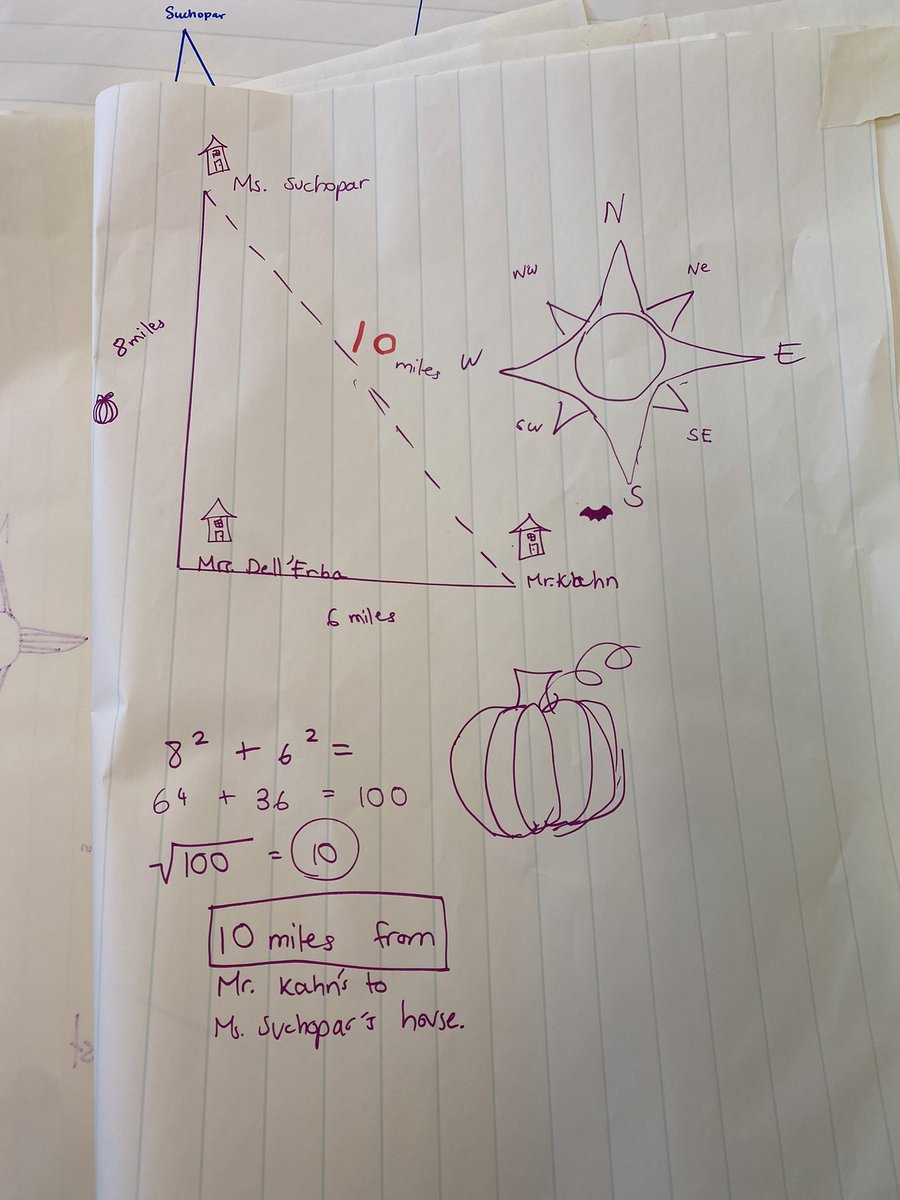 Suchopar
Ms. Suchopar
N
NW
Ne
8 miles
10
miles
W
E
SW
SE
S
Mrs Dell'Erba
Mr. Kahn
6 miles
8² + 6² =
64 + 36 = 100
√100 = 10
10 miles from
Mr. Kahn's to
Ms. Suchopar's house.